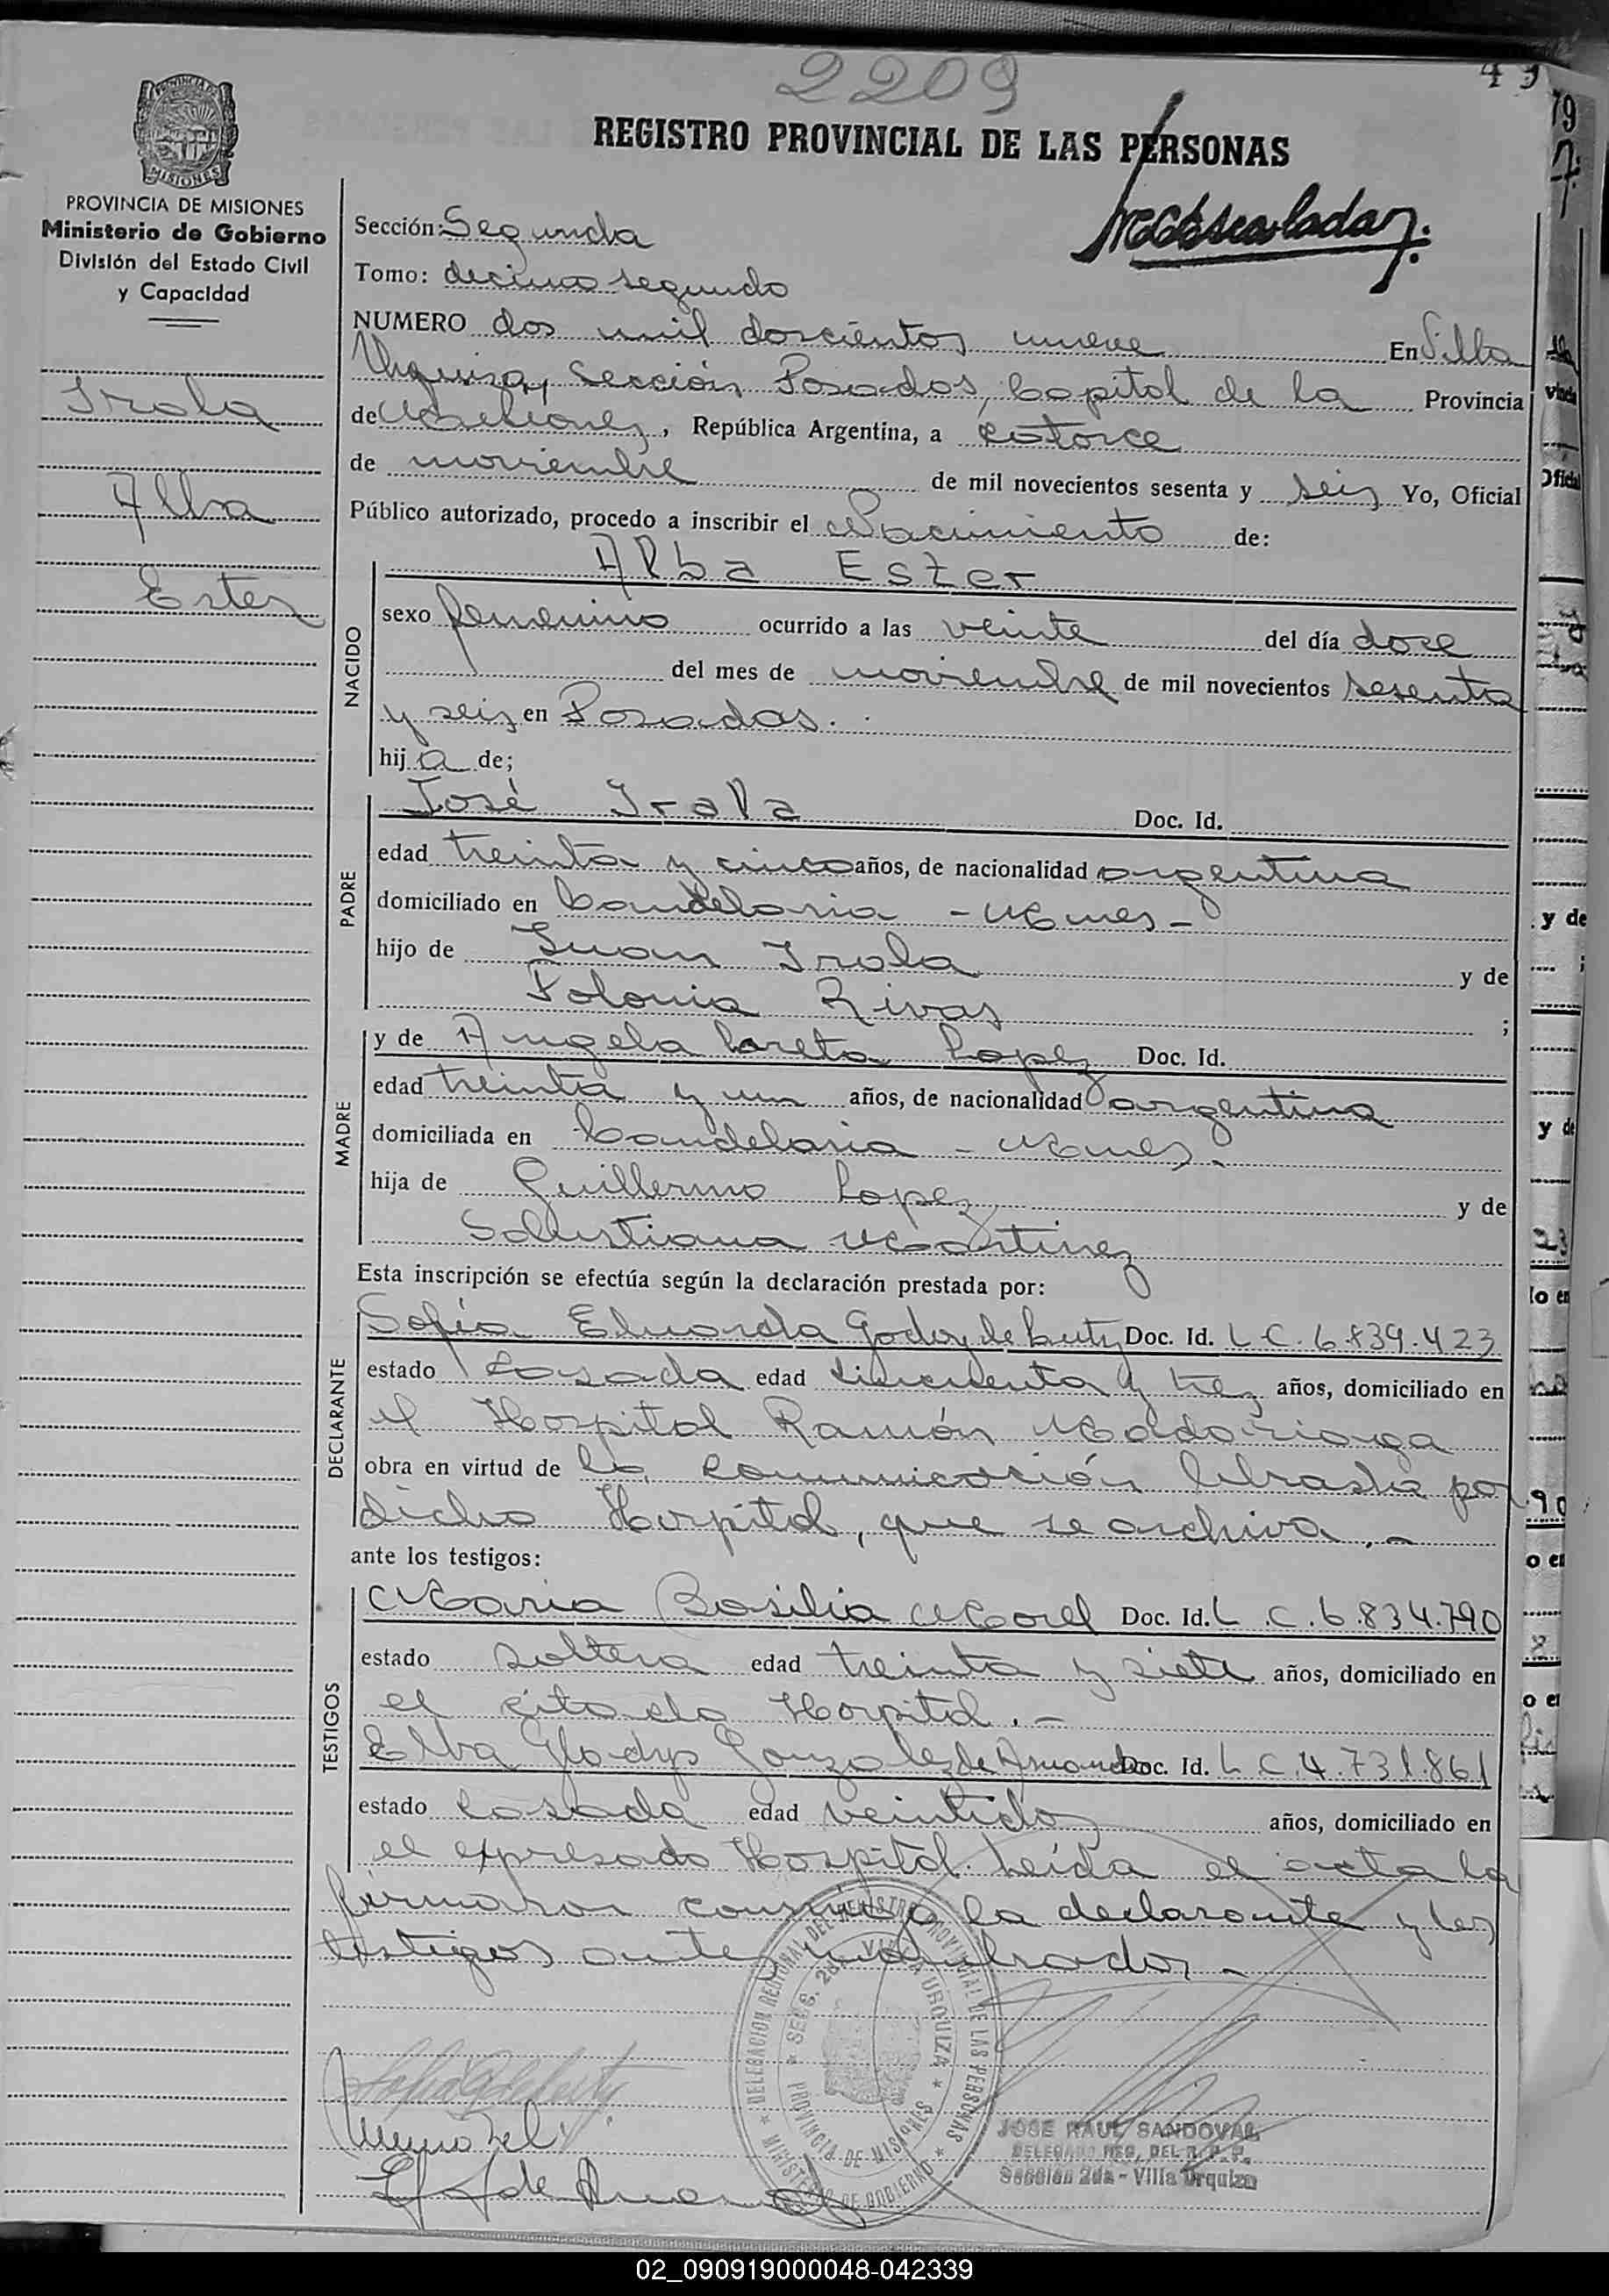 2209
49
REGISTRO PROVINCIAL DE LAS PERSONAS
MISIONES
PROVINCIA DE MISIONES
Ministerio de Gobierno
División del Estado Civil
y Capacidad
Irala
Alba
Ester
Sección: Segunda
Tomo: decimo segundo
NUMERO dos mil doscientos nueve En Villa
Urquiza, Sección Posadas, Capital de la Provincia
de Misiones, República Argentina, a catorce
de noviembre de mil novecientos sesenta y seis Yo, Oficial
Público autorizado, procedo a inscribir el Nacimiento de:
NACIDO
Alba Ester
sexo femenino ocurrido a las veinte del día doce
del mes de noviembre de mil novecientos sesenta
y seis en Posadas.
hija de;
PADRE
José Irala Doc. Id.
edad treinta y cinco años, de nacionalidad argentina
domiciliado en Candelaria - Mnes -
hijo de Juan Irala y de
Polonia Rivas ;
MADRE
y de Angela Loreta Lopez Doc. Id.
edad treinta y un años, de nacionalidad argentina
domiciliada en Candelaria - Mnes.
hija de Guillermo Lopez y de
Salustiana Martinez
Esta inscripción se efectúa según la declaración prestada por:
DECLARANTE
Sofia Eduarda Godoy de Doc. Id. L.C. 6.839.423
estado Casada edad cincuenta y tres años, domiciliado en
el Hospital Ramón Madariaga
obra en virtud de la comunicación librada por
dicho Hospital, que se archiva.-
ante los testigos:
TESTIGOS
Maria Basilia Morel Doc. Id. L.C. 6.834.790
estado soltera edad treinta y siete años, domiciliado en
el citado Hospital.-
Elba Gladys Gonzalez de Doc. Id. L.C. 4.731.861
estado casada edad veintidos años, domiciliado en
el expresado Hospital. Leída el acta la
firmaron conmigo la declarante y los
testigos antes nombrados.-
DELEGACION REGIONAL DEL REGISTRO PROVINCIAL DE LAS PERSONAS
MINISTERIO DE GOBIERNO
SECC. 2da. VILLA URQUIZA
PROVINCIA DE MISIONES
JOSE RAUL SANDOVAL
DELEGADO REG. DEL R. P. P.
Sección 2da - Villa Urquiza
02_090919000048-042339